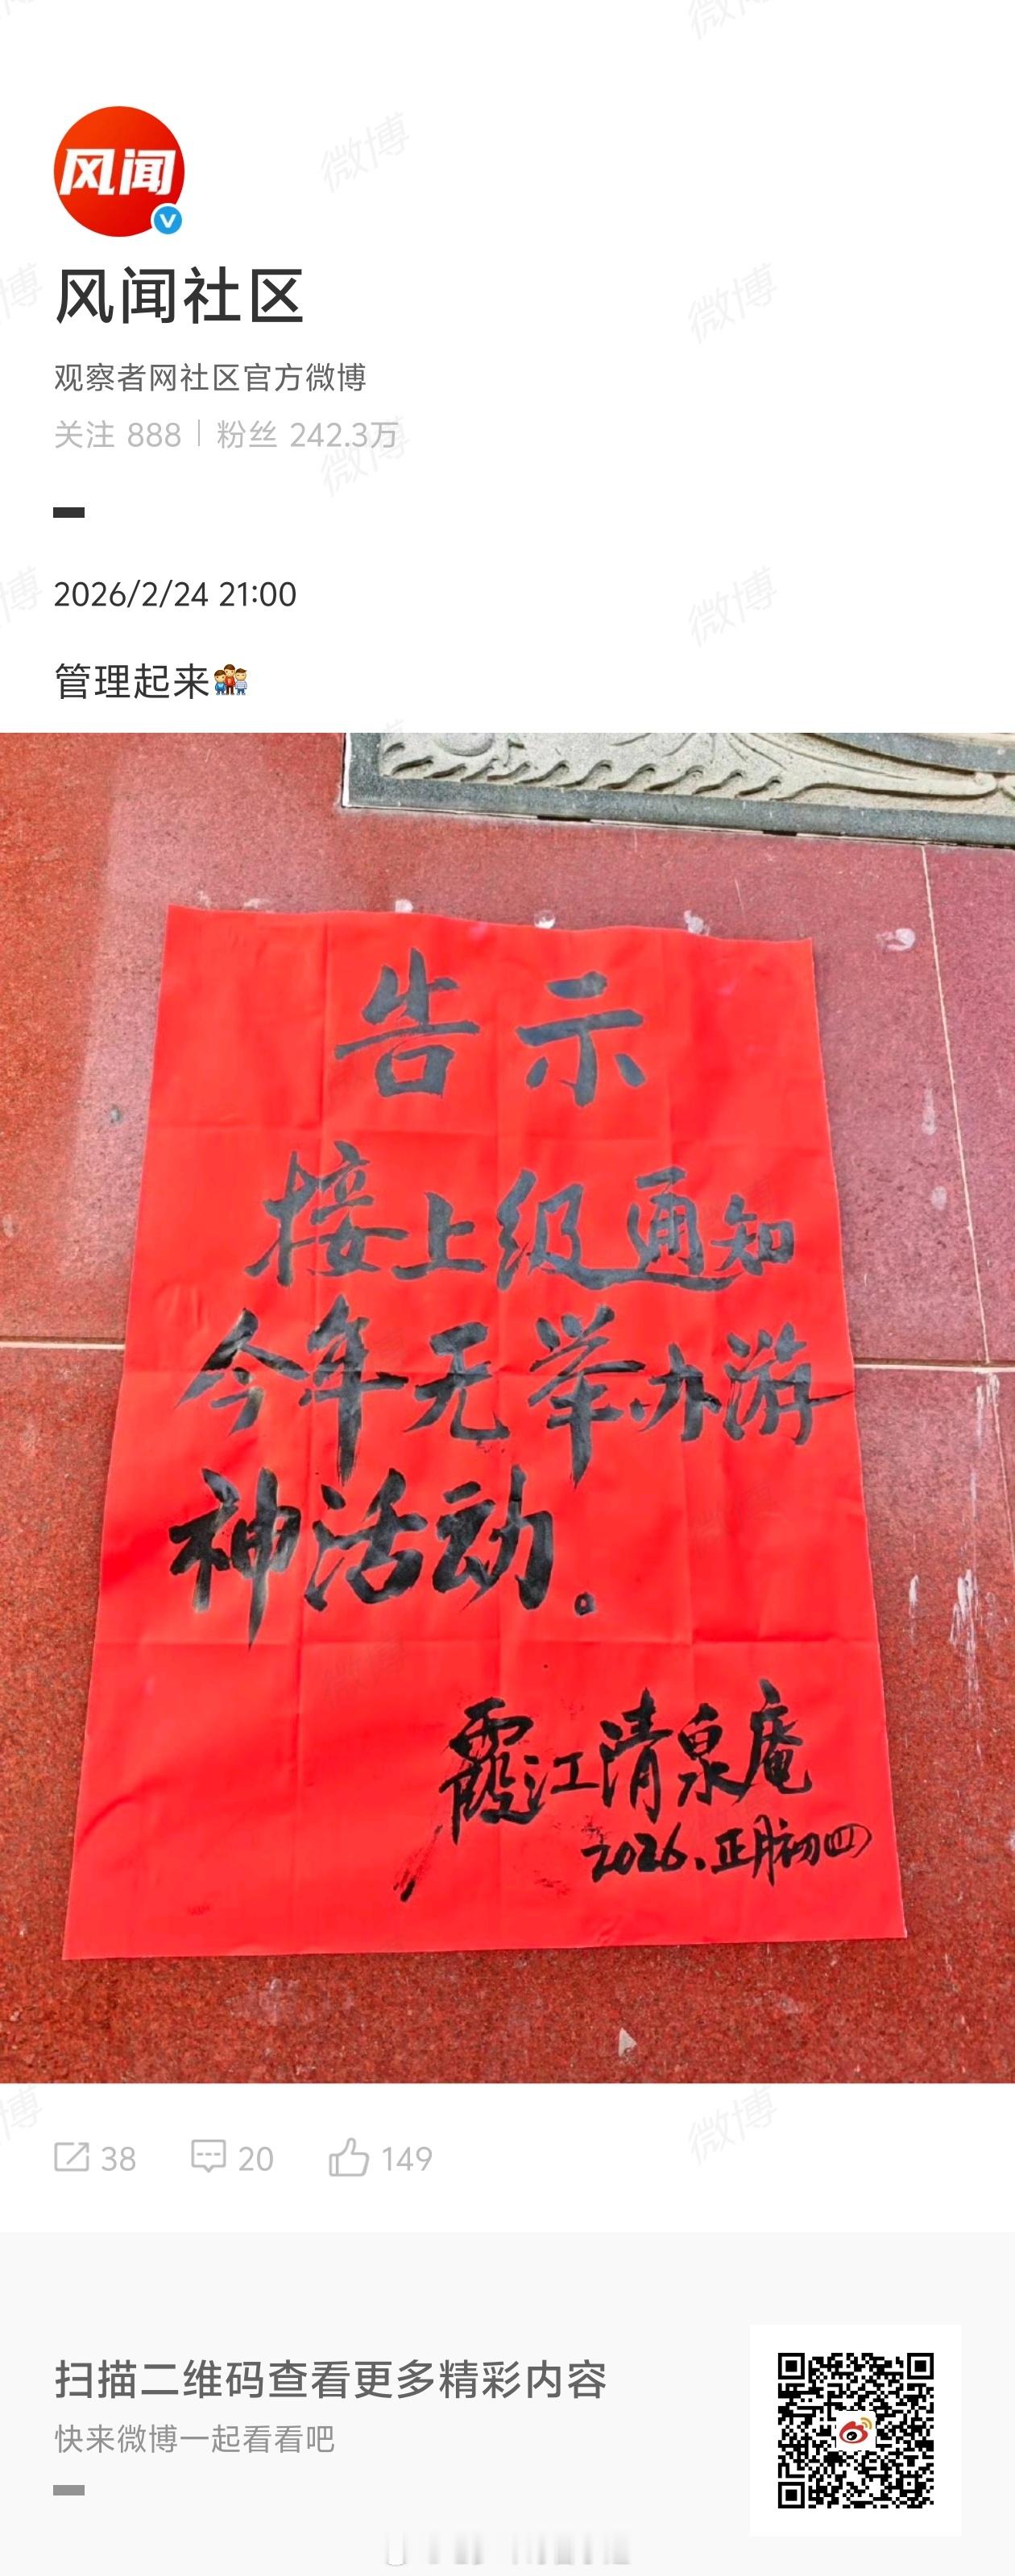 风闻
风闻社区
观察者网社区官方微博
关注 888 | 粉丝 242.3万
2026/2/24 21:00
管理起来
告示
接上级通知
今年无举办游
神活动。
霞江清泉庵
2026.正月初四
38 20 149
扫描二维码查看更多精彩内容
快来微博一起看看吧
微博